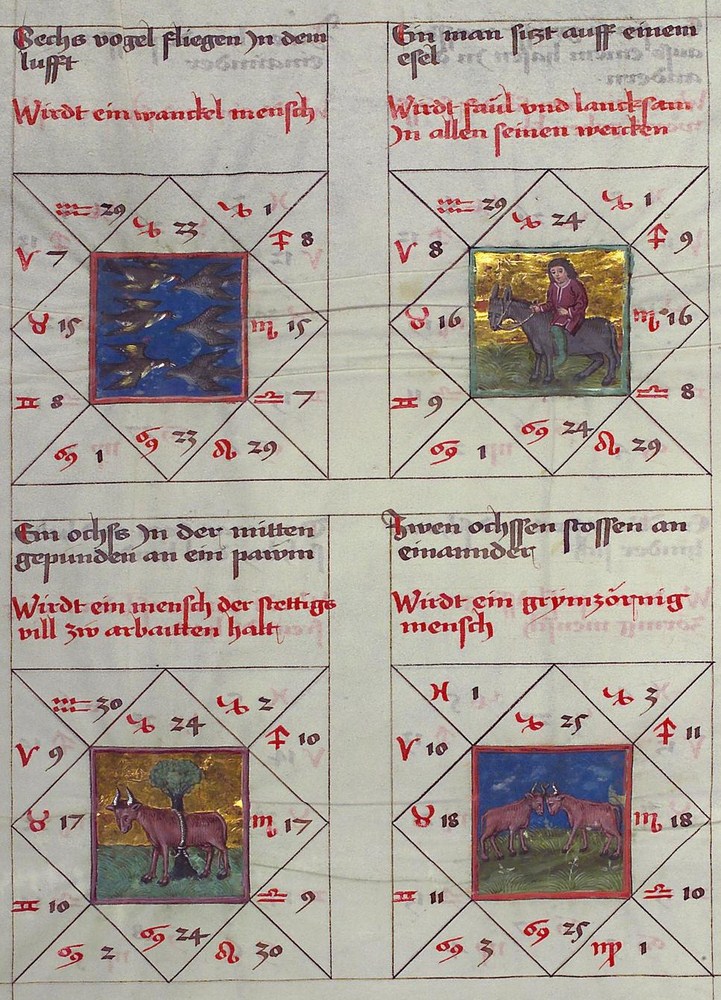 Sechs vogel fliegen Jn dem
lufft
Wirdt ein wanckel mensch
♒ 29
♑ 23
♑ 1
♈ 7
♐ 8
♉ 15
♏ 15
♊ 8
♎ 7
♋ 1
♋ 23
♌ 29
Ein man sitzt auff einem
esel
Wirdt faül vnd lancksam
Jn allen seinen wercken
♒ 29
♑ 24
♑ 1
♈ 8
♐ 9
♉ 16
♏ 16
♊ 9
♎ 8
♋ 1
♋ 24
♌ 29
Ein ochss Jn der mitten
gepunden an ein pawm
Wirdt ein mensch der stettigs
vill zw arbaitten hatt
♒ 30
♑ 24
♑ 2
♈ 9
♐ 10
♉ 17
♏ 17
♊ 10
♎ 9
♋ 2
♋ 24
♌ 30
Zwen ochssen stossen an
einannder
Wirdt ein grymzörnig
mensch
♓ 1
♑ 25
♑ 3
♈ 10
♐ 11
♉ 18
♏ 18
♊ 11
♎ 10
♋ 3
♋ 25
♍ 1